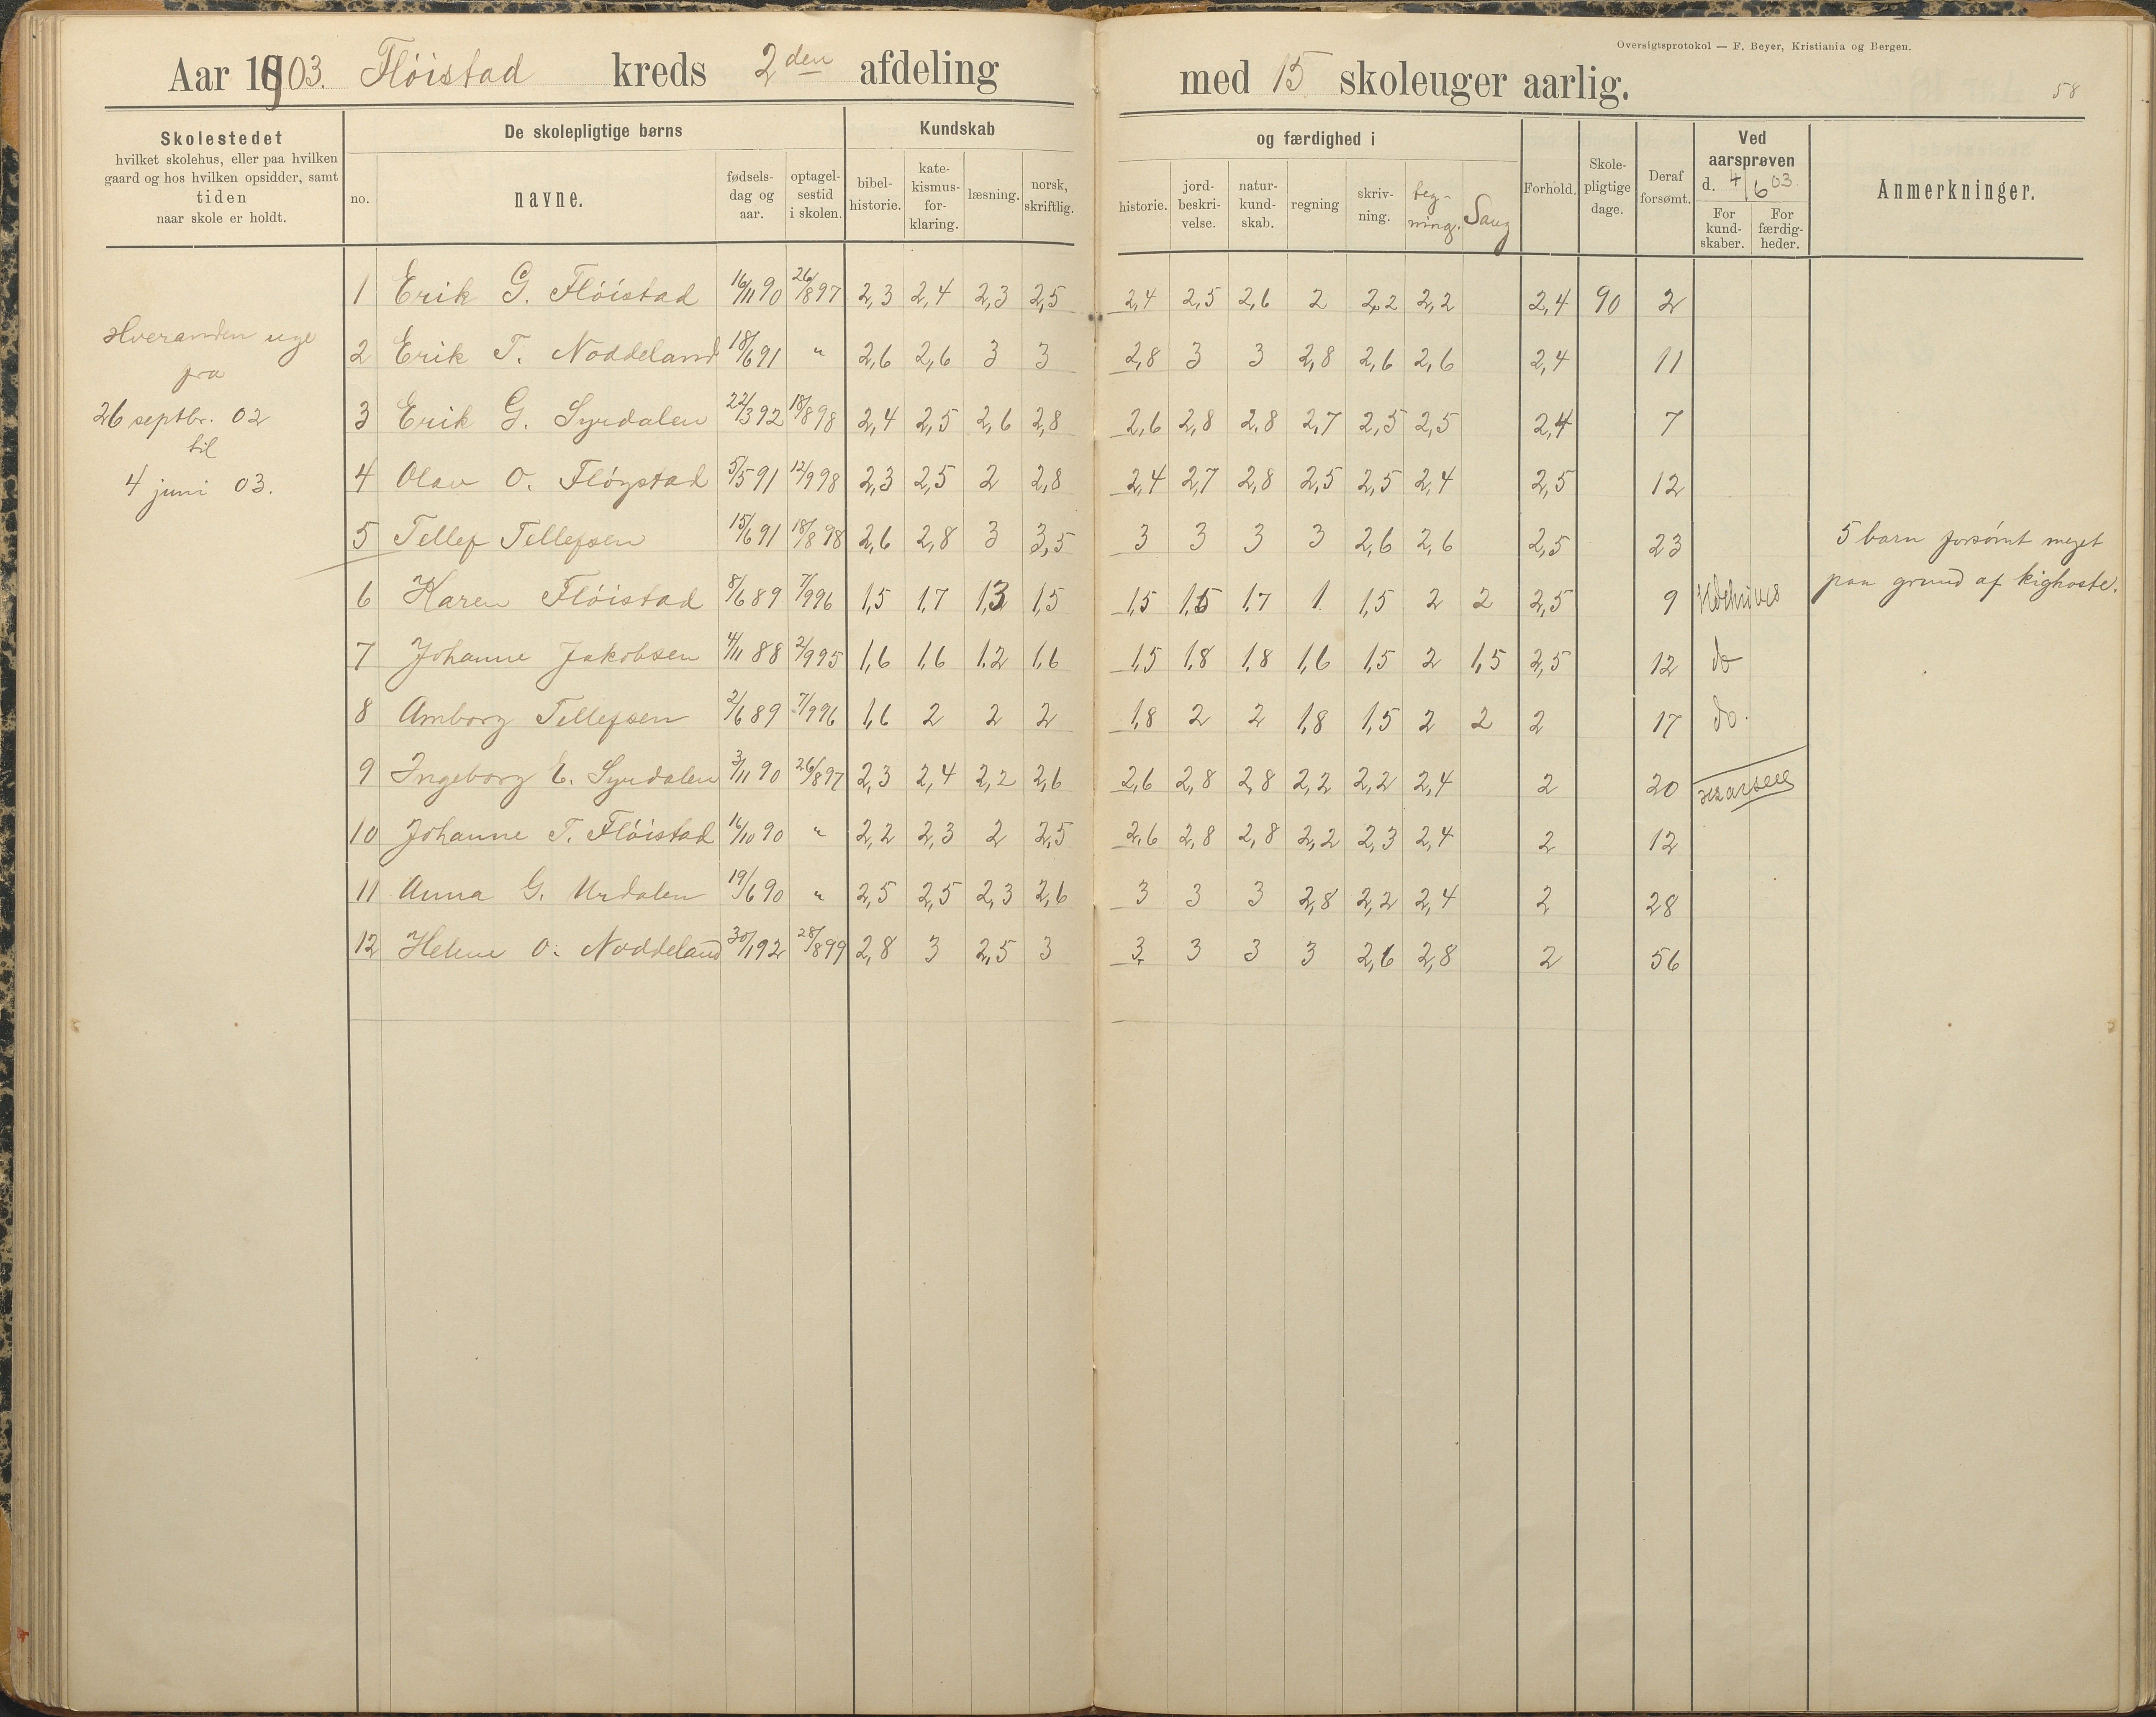 Oversigtsprotokol — F. Beyer, Kristiania og Bergen.
Aar 1903. Flöistad kreds 2den afdeling med 15 skoleuger aarlig.
58
Skolestedet
hvilket skolehus, eller paa hvilken
gaard og hos hvilken opsidder, samt
tiden
naar skole er holdt.
De skolepligtige børns
no.
navne.
fødsels-
dag og
aar.
optagel-
sestid
i skolen.
Kundskab
bibel-
historie.
kate-
kismus-
for-
klaring.
læsning.
norsk,
skriftlig.
og færdighed i
historie.
jord-
beskri-
velse.
natur-
kund-
skab.
regning
skriv-
ning.
teg-
ning.
Sang
Forhold.
Skole-
pligtige
dage.
Deraf
forsømt.
Ved
aarsprøven
d. 4/6 03.
For
kund-
skaber.
For
færdig-
heder.
Anmerkninger.
Hveranden uge
fra
26 septbr. 02
til
4 juni 03.
1 Erik G. Flöistad 16/11 90 26/8 97 2,3 2,4 2,3 2,5 2,4 2,5 2,6 2 2,2 2,2 2,4 90 2
2 Erik T. Noddeland 18/6 91 " 2,6 2,6 3 3 2,8 3 3 2,8 2,6 2,6 2,4 11
3 Erik G. Syrdalen 22/3 92 18/8 98 2,4 2,5 2,6 2,8 2,6 2,8 2,8 2,7 2,5 2,5 2,4 7
4 Olav O. Flöystad 5/5 91 12/9 98 2,3 2,5 2 2,8 2,4 2,7 2,8 2,5 2,5 2,4 2,5 12
5 Tellef Tellefsen 15/6 91 18/8 98 2,6 2,8 3 3,5 3 3 3 3 2,6 2,6 2,5 23
6 Karen Flöistad 8/6 89 7/9 96 1,5 1,7 1,3 1,5 1,5 1,5 1,7 1 1,5 2 2 2,5 9 Udskrives
7 Johanne Jakobsen 4/11 88 2/9 95 1,6 1,6 1,2 1,6 1,5 1,8 1,8 1,6 1,5 2 1,5 2,5 12 do
8 Amborg Tellefsen 2/6 89 7/9 96 1,6 2 2 2 1,8 2 2 1,8 1,5 2 2 2 17 do.
9 Ingeborg E. Syrdalen 3/11 90 26/8 97 2,3 2,4 2,2 2,6 2,6 2,8 2,8 2,2 2,2 2,4 2 20
10 Johanne T. Flöistad 16/10 90 " 2,2 2,3 2 2,5 2,6 2,8 2,8 2,2 2,3 2,4 2 12
11 Anna G. Urdalen 19/6 90 " 2,5 2,5 2,3 2,6 3 3 3 2,8 2,2 2,4 2 28
12 Helene O. Noddeland 30/1 92 28/8 99 2,8 3 2,5 3 3 3 3 3 2,6 2,8 2 56
5 barn forsömt meget
paa grund af kighoste.